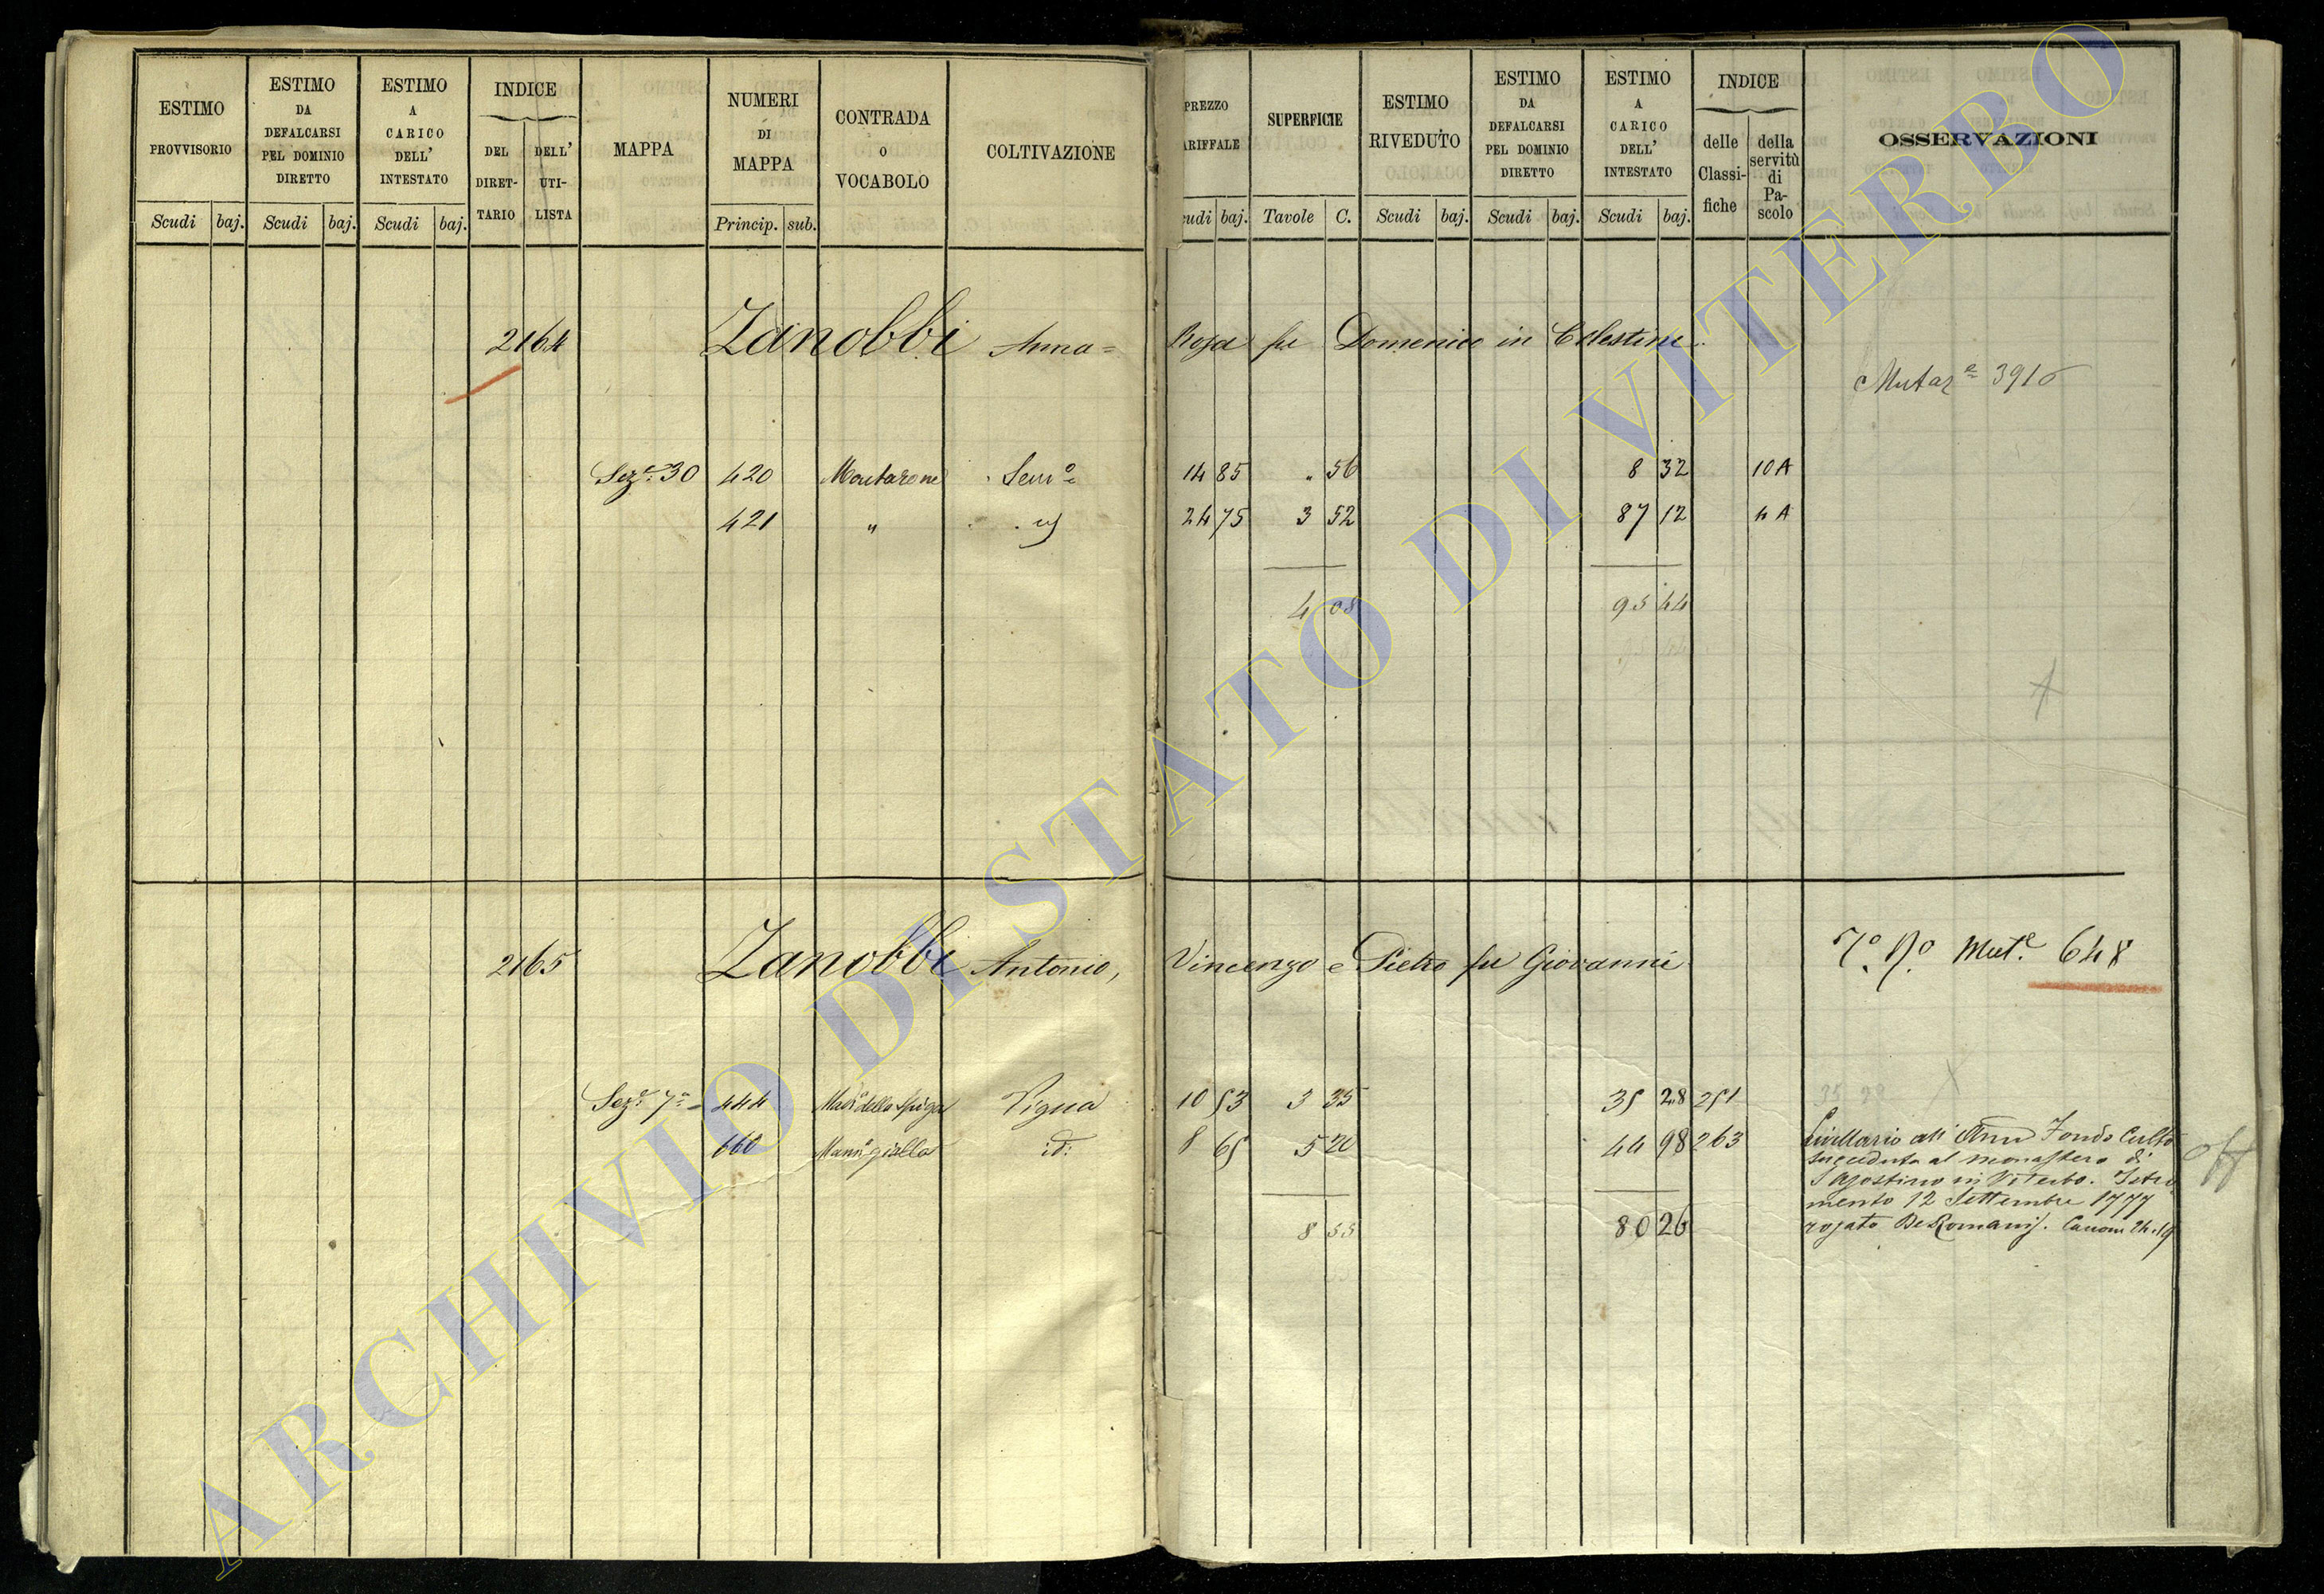 ESTIMO PROVVISORIO
Scudi baj.
ESTIMO DA DEFALCARSI PEL DOMINIO DIRETTO
Scudi baj.
ESTIMO A CARICO DELL' INTESTATO
Scudi baj.
INDICE
DEL DIRET-
TARIO
DELL' UTI-
LISTA
MAPPA
NUMERI DI MAPPA
Princip. sub.
CONTRADA O VOCABOLO
COLTIVAZIONE
PREZZO
ARIFFALE
udi baj.
SUPERFICIE
Tavole C.
ESTIMO RIVEDUTO
Scudi baj.
ESTIMO DA DEFALCARSI PEL DOMINIO DIRETTO
Scudi baj.
ESTIMO A CARICO DELL' INTESTATO
Scudi baj.
INDICE
delle Classi-
fiche
della servitù di Pa-
scolo
OSSERVAZIONI
2164 Zanobbi Anna= Rosa fu Domenico in Celestini
Mutaze 3916
Seze 30 420 Montarone Semo 14 85 " 56 8 32 10 A
421 " id 24 75 3 52 87 12 4 A
4 08 95 44
2165 Zanobbi Antonio, Vincenzo e Pietro fu Giovanni
Mute 648
Seze 7a 444 Vigna 10 53 3 35 35 28 251
660 id: 8 65 5 20 44 98 263
8 55 80 26
35 28
Livellario all' Fondo Culto
succeduta al monastero di
S Agostino in Viterbo. Istro
mento 12 Settembre 1777
rogato De Romanis.
ARCHIVIO DI STATO DI VITERBO